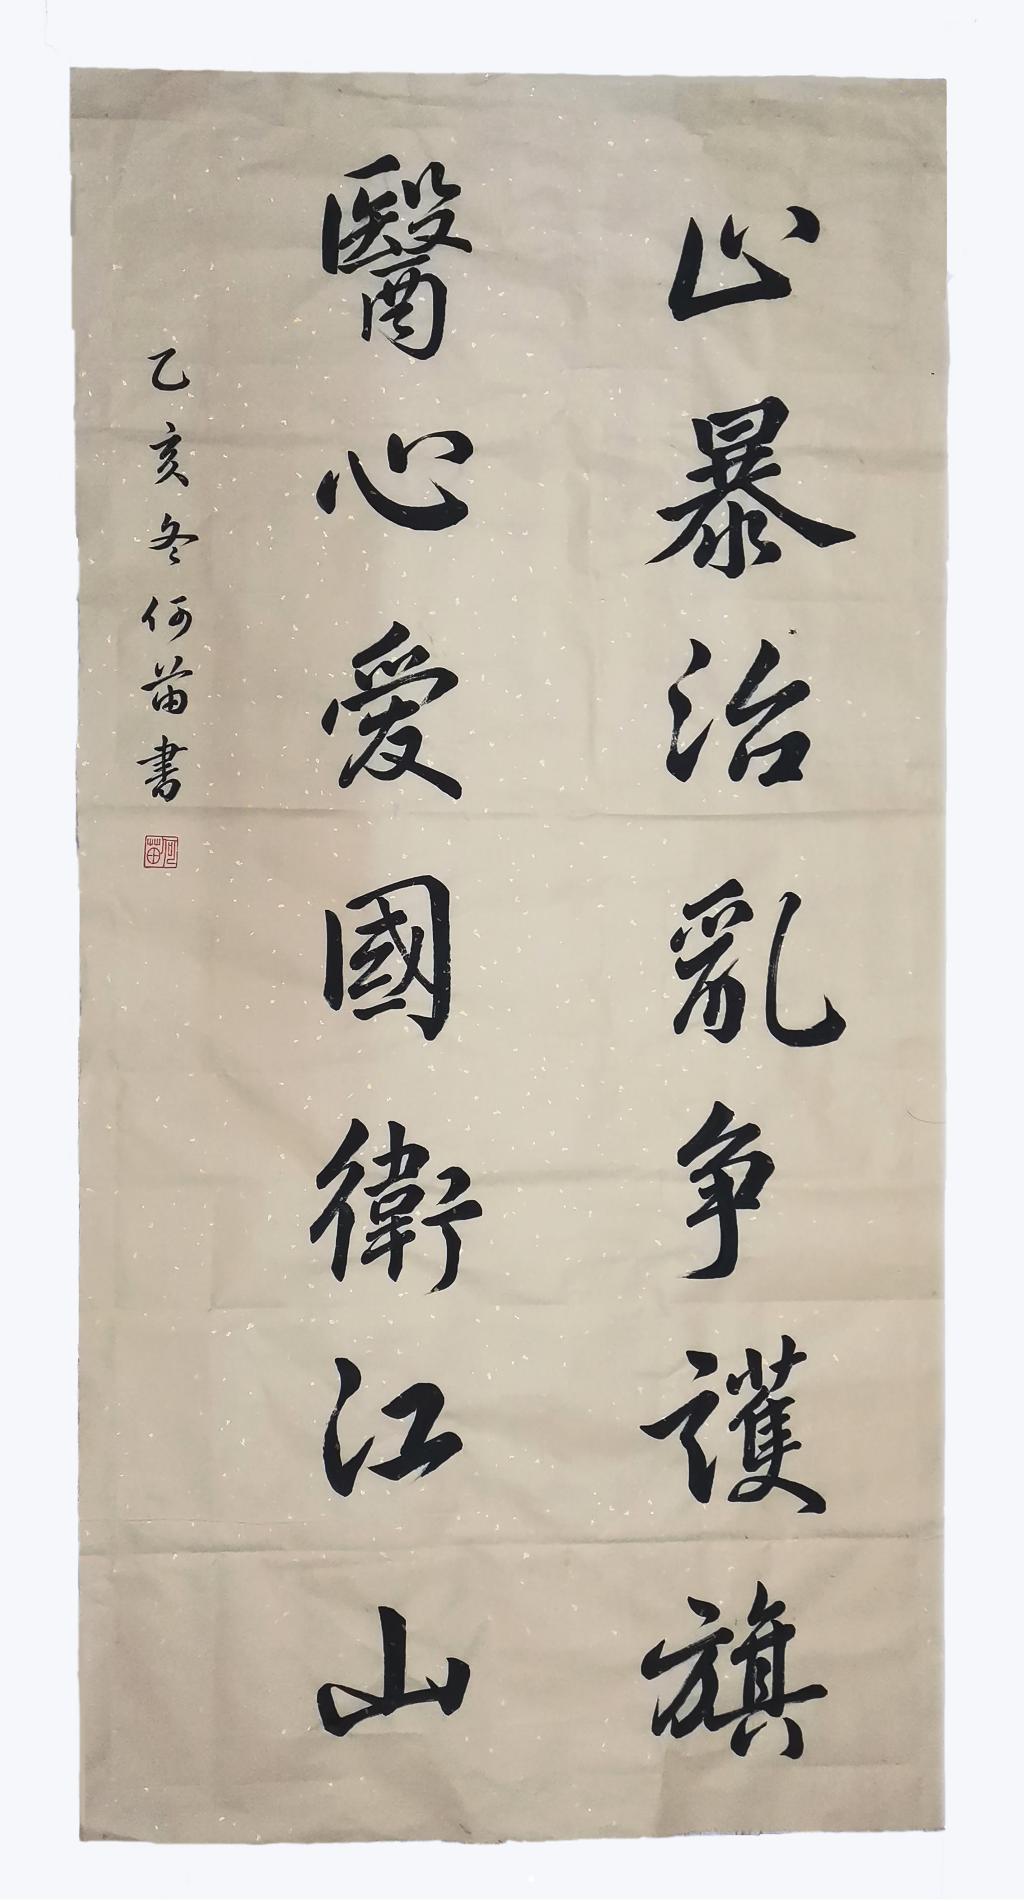 止暴治亂争護旗
醫心愛國衛江山
乙亥冬何苗書
何苗